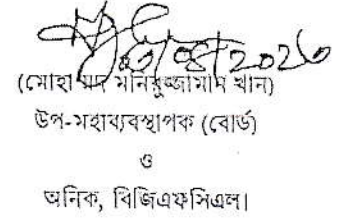 (মোহাম্মদ মনিরুজ্জামান খান)
উপ-মহাব্যবস্থাপক (বোর্ড)
ও
অনিক, বিজিএফসিএল।